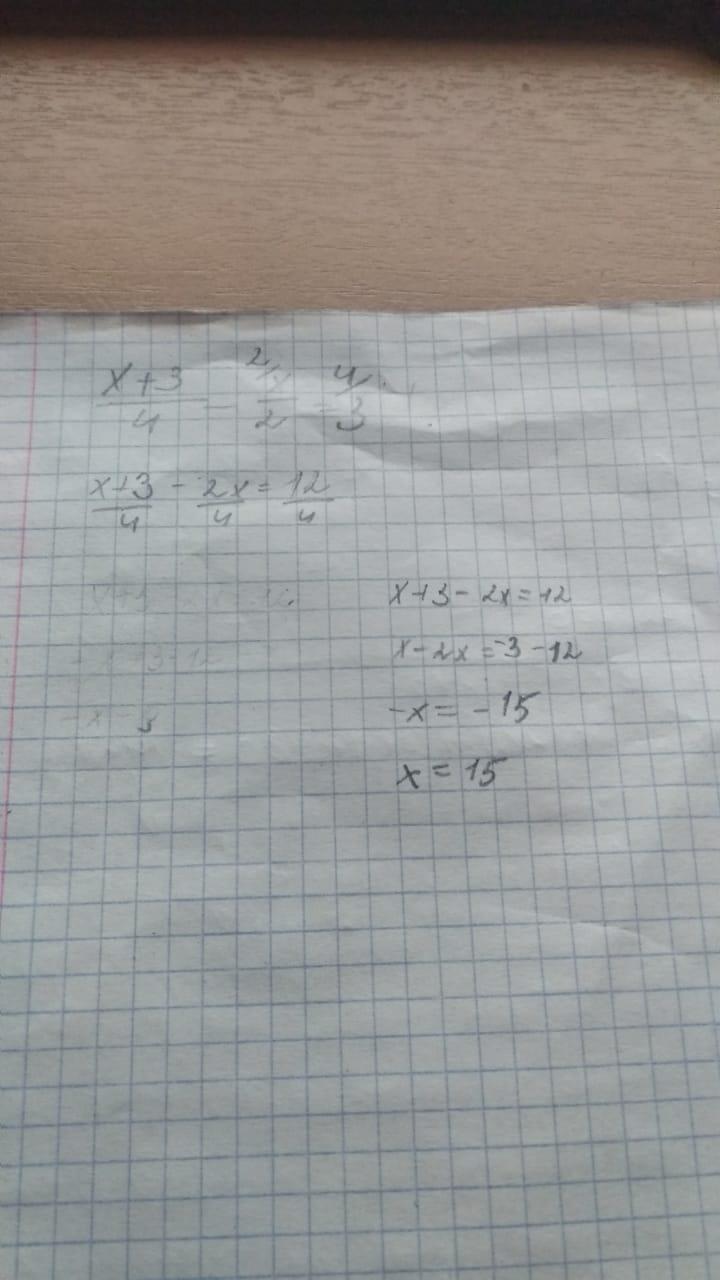 x+3/4 - 2/x/2 = 4/3
x+3/4 - 2x/4 = 12/4
x+3 - 2x = 12
x - 2x = -3 - 12
-x = -15
x = 15